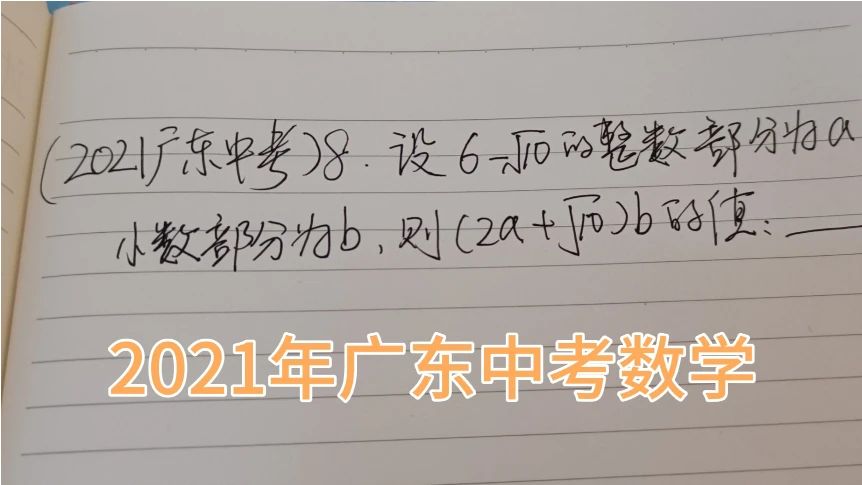 (2021广东中考)8.设6-√10的整数部分为a
小数部分为b,则(2a+√10)b的值:____
2021年广东中考数学